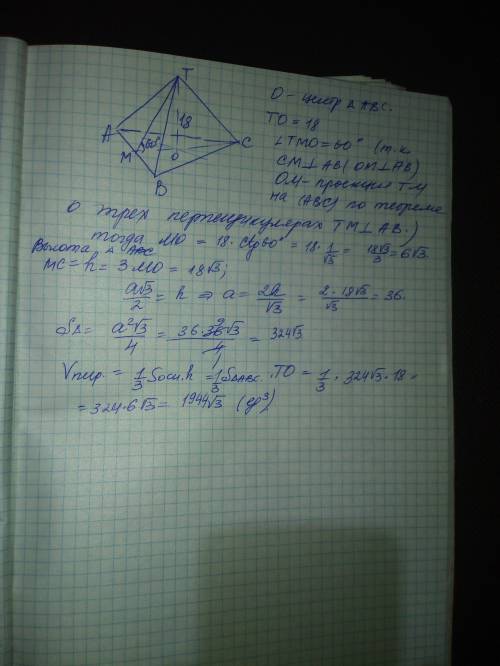 T
18
A
M
60°
O
C
B
O - центр Δ ABC.
TO = 18
∠TMO = 60° (т.к.
CM⊥AB (OM⊥AB)
OM - проекция TM
на (ABC) по теореме
о трех перпендикулерах TM⊥AB.)
тогда MO = 18·ctg60° = 18·1/√3 = 18√3/3 = 6√3.
Высота Δ ABC
MC = h = 3MO = 18√3;
a√3/2 = h ⇒ a = 2h/√3 = 2·18√3/√3 = 36.
SΔ = a²√3/4 = 36·36√3/4 = 324√3
9
1
Vпир. = 1/3 Sосн.h = 1/3 SΔABC·TO = 1/3·324√3·18 =
= 324·6√3 = 1944√3